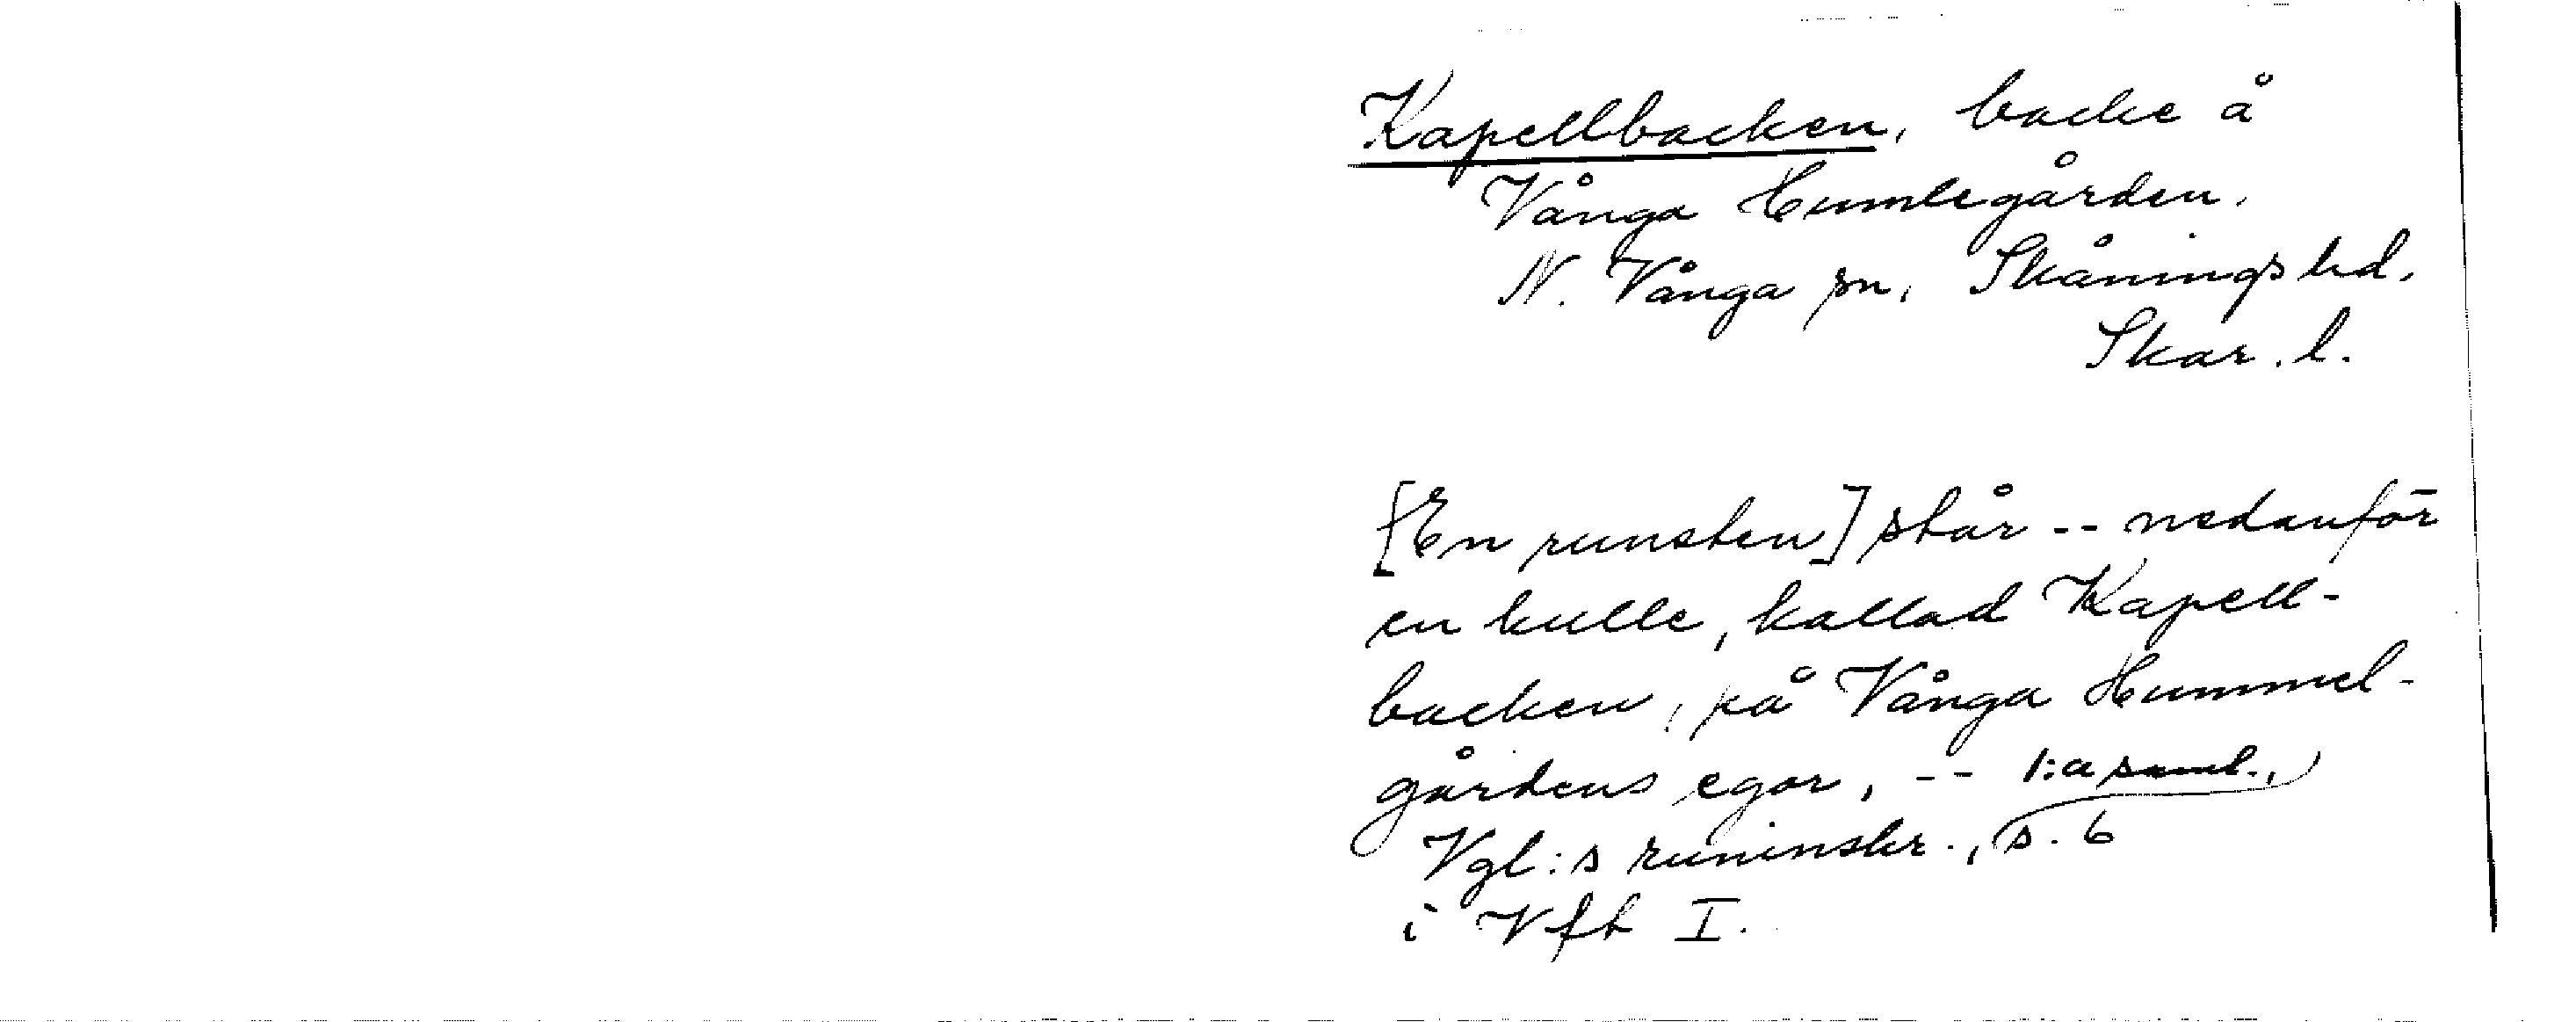 Kapellbacken, backe å
Vånga Humlegården.
N. Vånga sn, Skånings hd.
Skar. l.
[En runsten] står -- nedanför
en kulle, kallad Kapell-
backen, på Vånga Hummel-
gårdens egor, -- 1:a saml.,
Vgl:s runinskr., s. 6
i Vft I.